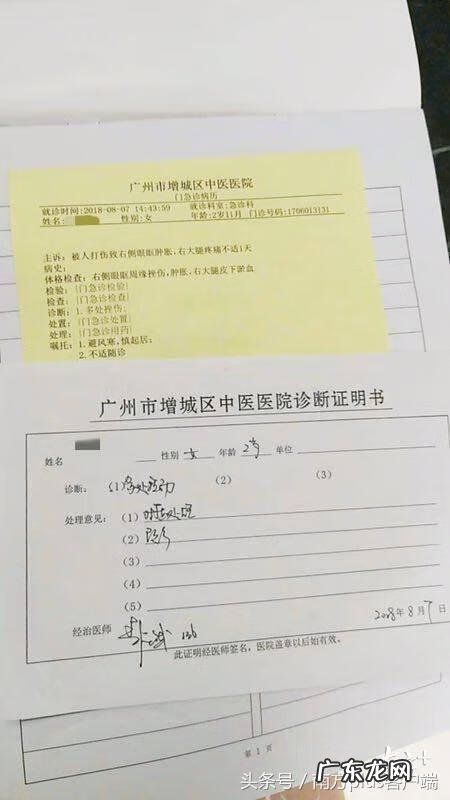 广州市增城区中医医院
门急诊病历
就诊时间:2018-08-07 14:43:59 就诊科室:急诊科
姓名: 性别:女 年龄:2岁11月 门诊号码:1706013131
主诉: 被人打伤致右侧眼眶肿胀, 右大腿疼痛不适1天
病史:
体格检查: 右侧眼眶周缘挫伤, 肿胀, 右大腿皮下淤血
检验: [门急诊检验]
检查: [门急诊检查]
诊断: 1.多处挫伤;
处置: [门急诊处置]
处理: [门急诊用药]
嘱托: 1.避风寒, 慎起居;
2.不适随诊
广州市增城区中医医院诊断证明书
姓名 性别 女 年龄 2岁 单位
诊断: (1) 多处挫伤 (2) (3)
处理意见: (1)
(2)
(3)
(4)
(5)
经治医师
2018年8月7日
此证明经医师签名, 医院盖章以后始有效。
第 1 页
头条号/南方plus客户端
广东龙网